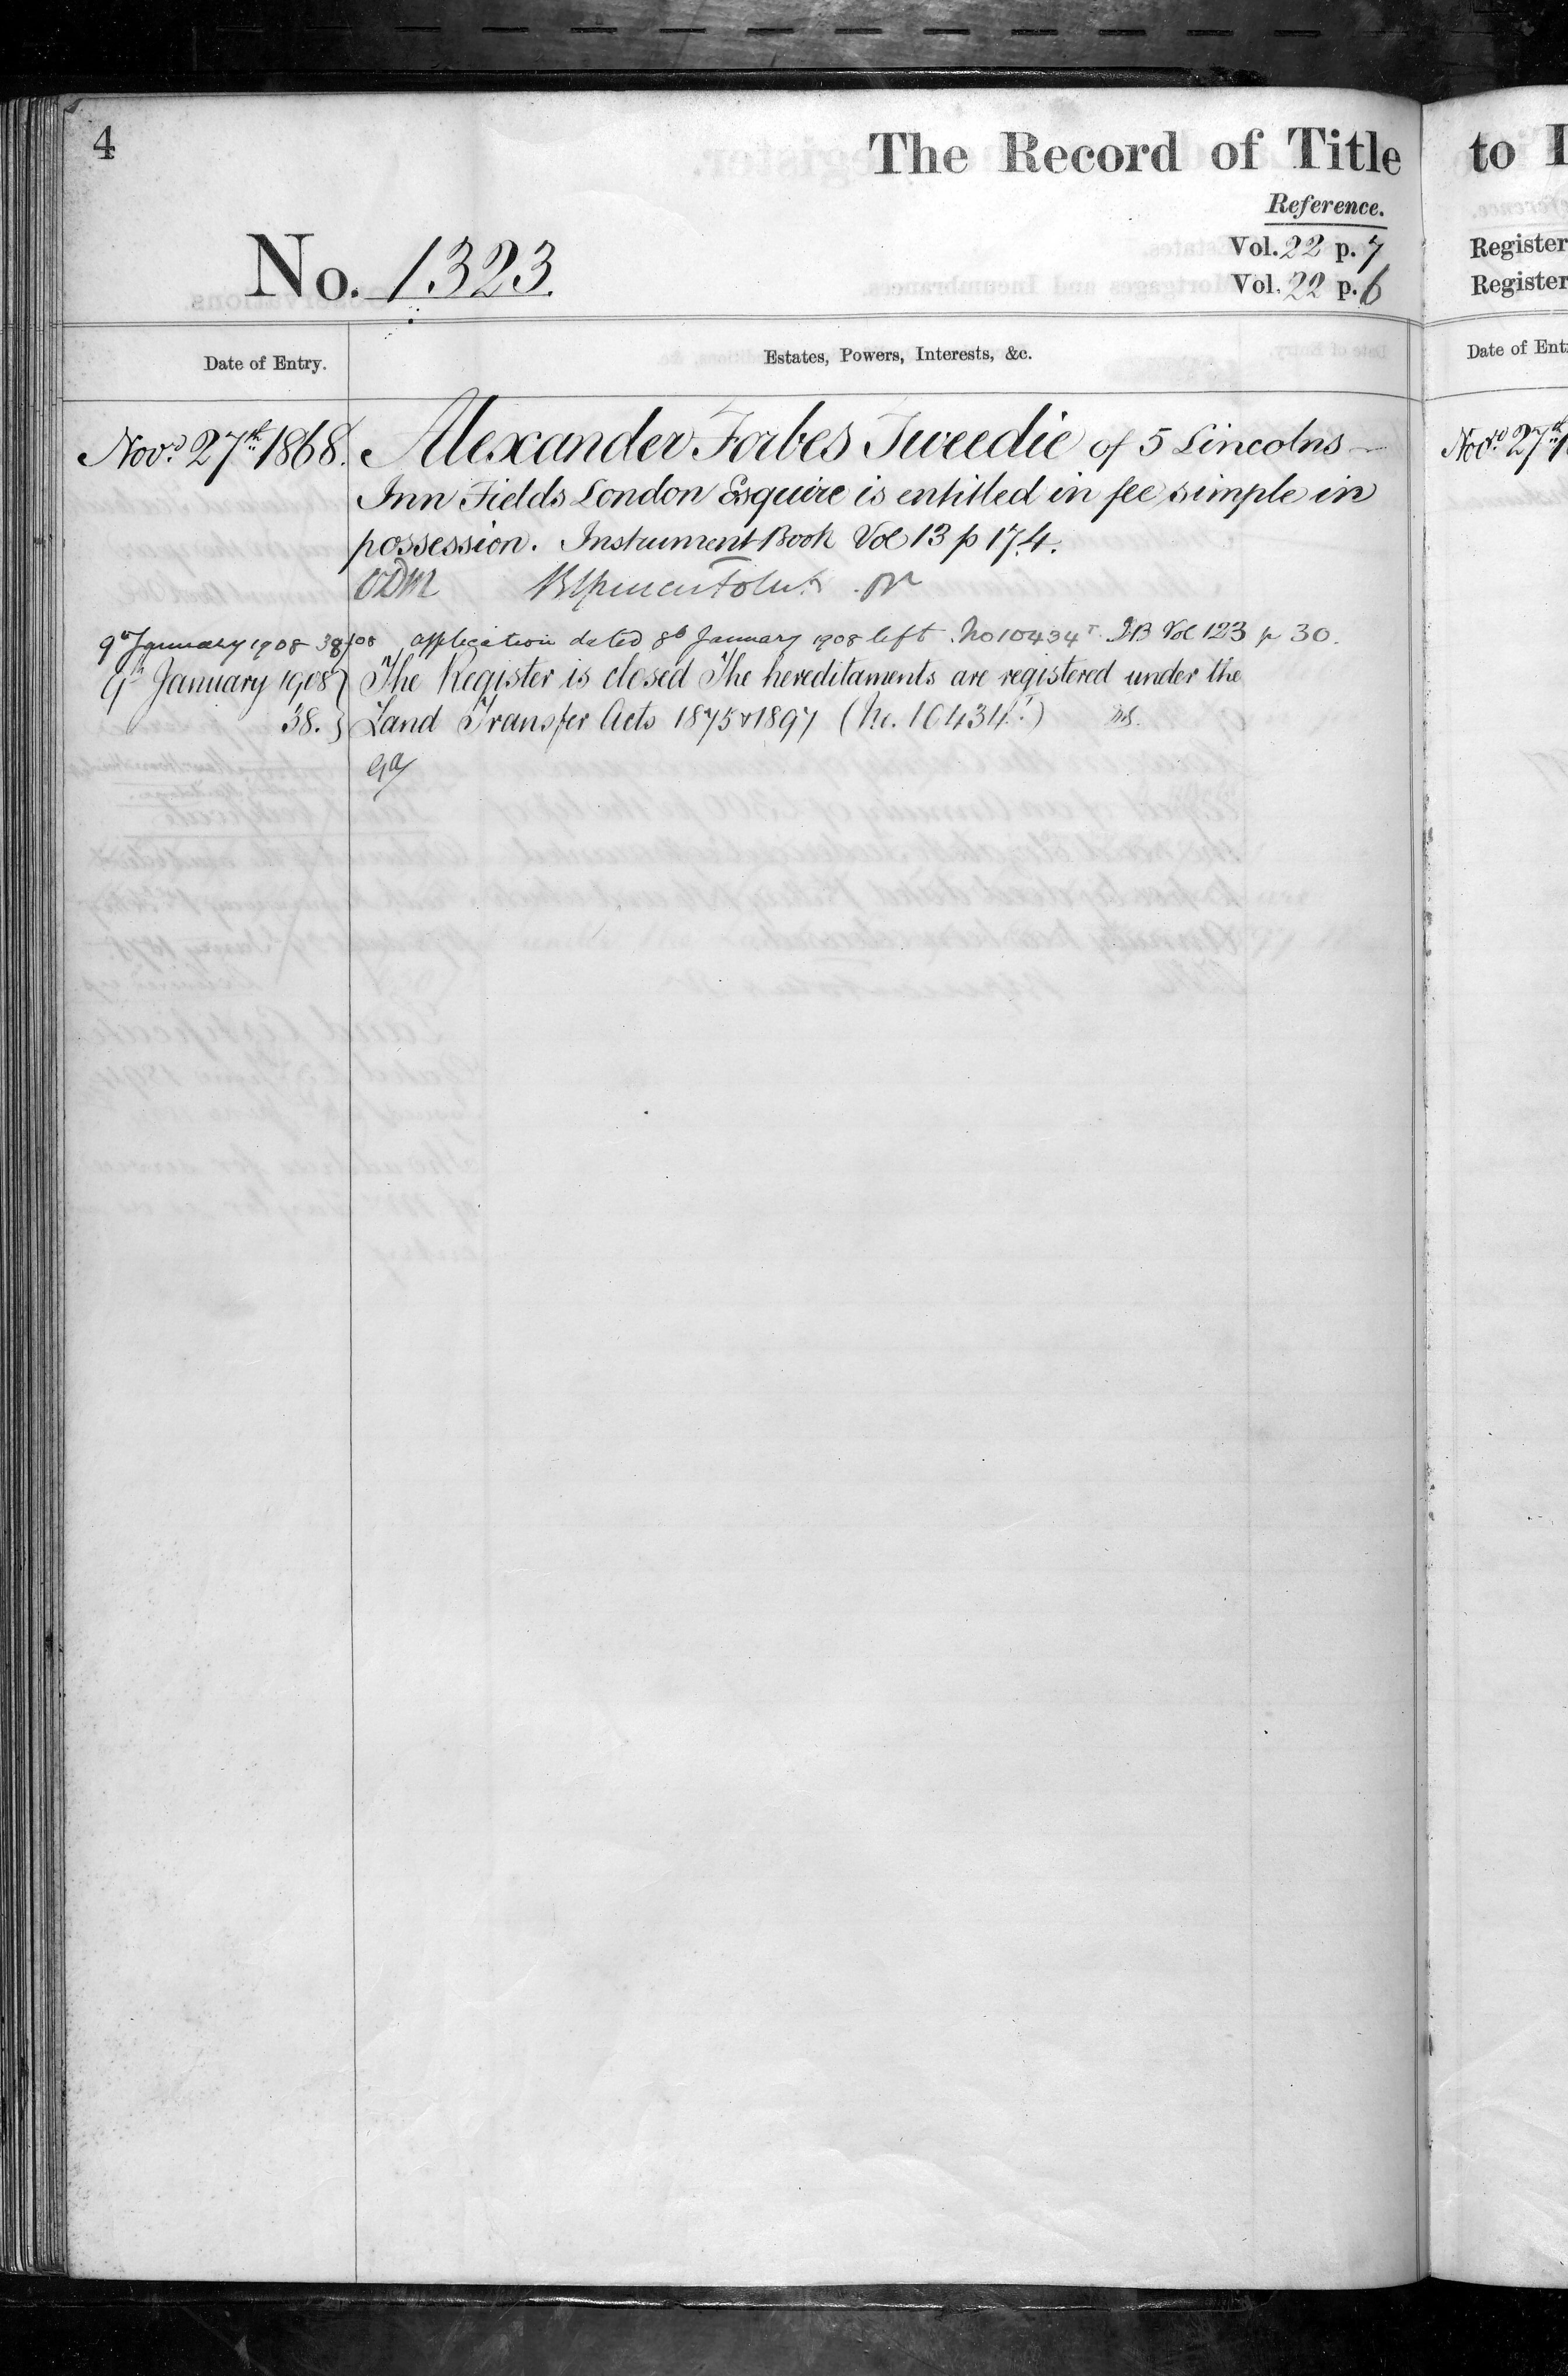 4
The Record of Title
Reference.
No. 1323.
Vol. 22 p. 7
Vol. 22 p. 6
Date of Entry.
Estates, Powers, Interests, &c.
Novr. 27th 1868. Alexander Forbes Tweedie of 5 Lincolns
Inn Fields London Esquire is entitled in fee simple in
possession. Instrument Book Vol 13 p 174.
9th January 1908 38/08 application dated 8th January 1908 left No 10434 T. IB Vol 123 p 30.
9th January 1908 } The Register is closed The hereditaments are registered under the
38. } Land Transfer Acts 1875 & 1897 (No. 10434 T.)
to
Register
Register
Date of Ent
Novr. 27th 1